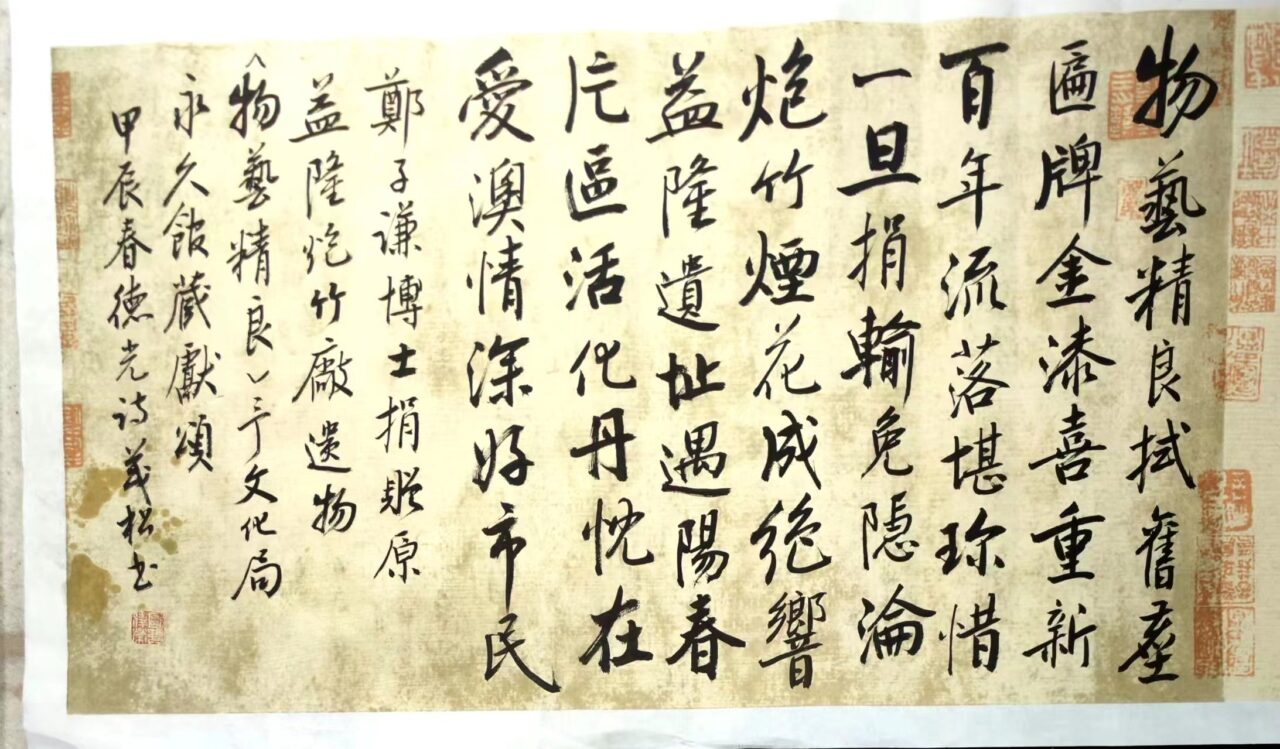 物藝精良拭舊塵
匾牌金漆喜重新
百年流落堪珍惜
一旦捐輸免隱淪
炮竹煙花成絕響
益隆遺址遇陽春
片區活化丹忱在
愛澳情深好市民
鄭子謙博士捐贈原
益隆炮竹廠遺物
《物藝精良》予文化局
永久館藏獻頌
甲辰春德光詩茂松书